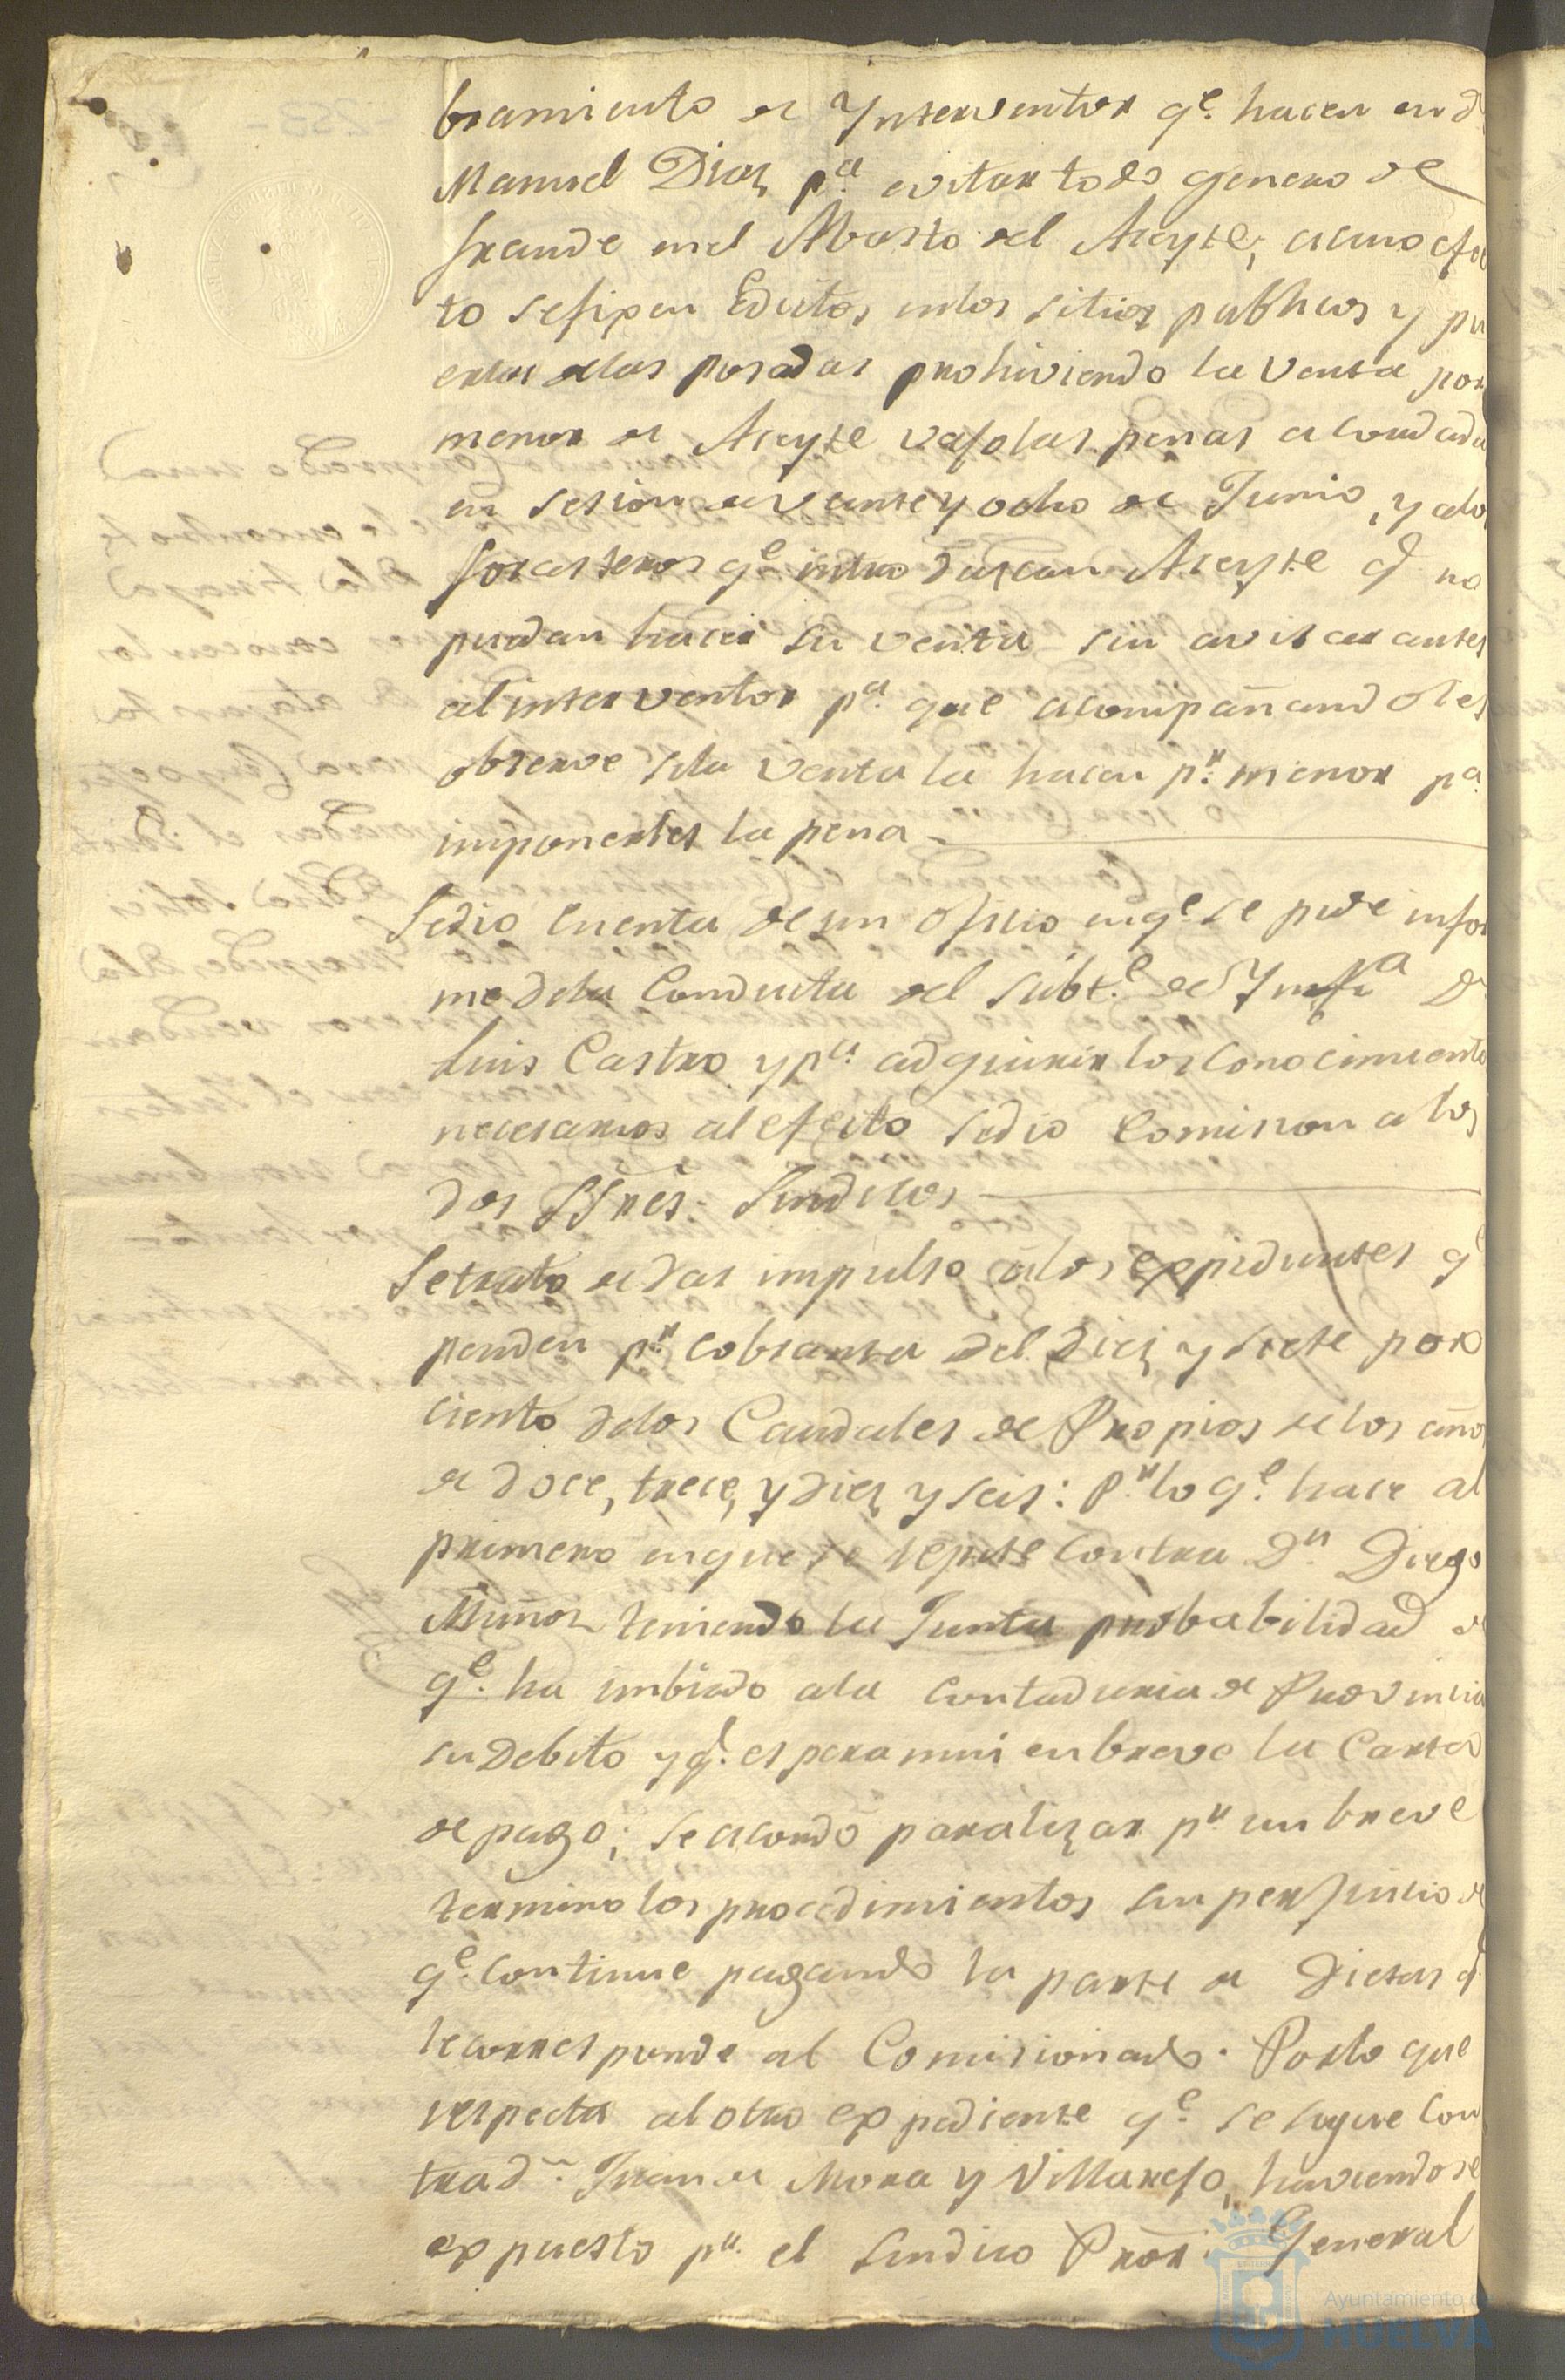 bramiento de Ynterventor qe. hacen en dn
Manuel Diaz pa. evitar todo genero de
fraude en el Abasto del Aceyte; a cuno efec
to se fixen Edictos en los sitios publicos y pu
ertas de las posadas prohiviendo la venta por
menor de Aceyte vajo las penas acordadas
en sesion de veinte y ocho de Junio, y a los
forasteros qe. introduzcan Aceyte q. no
puedan hacer su venta sin avisar antes
al interventor pa. que acompañandoles
observe si la venta la hacen pr. menor pa.
imponerles la pena
Se dio cuenta de un oficio en qe. se pide infor
me de la Conducta del subte. de Ynfa. Dn
Luis Castro y pa. adquirir los conocimientos
necesarios al efecto se dio Comision a los
dos SSres. Sindicos
Se trato de dar impulso a los expedientes qe
penden pr. cobransa del diez y siete por
ciento de los Caudales de Propios de los años
de doce, trece, y diez y seis: Pr. lo qe. hace al
primero en que se repite contra Dn. Diego
Muñoz teniendo la Junta probabilidad de
qe. ha imbiado a la Contaduria de Provincia
su Debito y q. espera mui en breve la Carta
de pago; se acordó paralizar pr. un breve
termino los procedimientos sin perjuicio de
qe. continue pagando la parte de Dietas q.
le corresponde al Comisionado. Por lo que
respecta al otro expediente qe. se sigue con
tra dn. Juan de Mora y Villarejo, haviendose
expuesto pr. el Sindico Pror. General
Ayuntamiento de
HUELVA